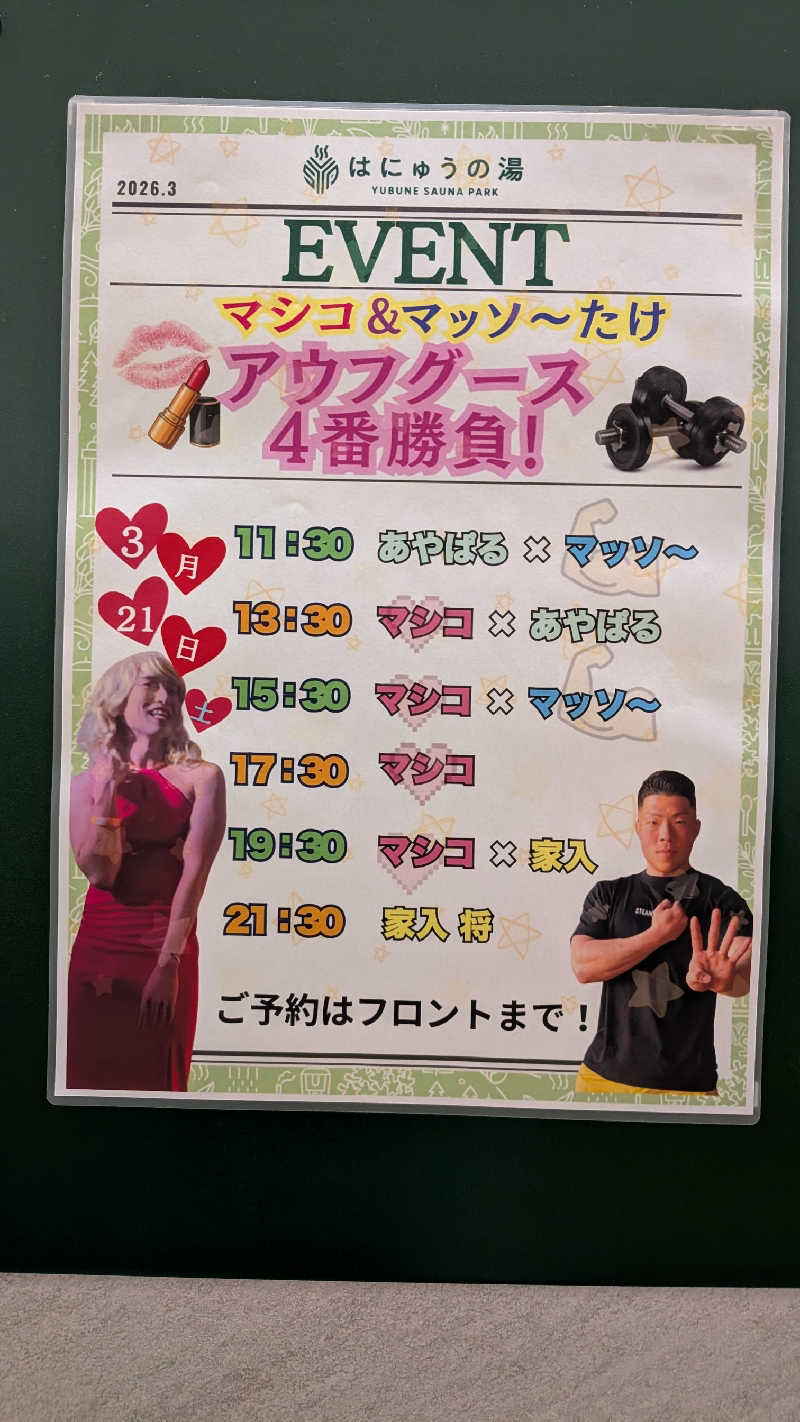 はにゅうの湯
YUBUNE SAUNA PARK
2026.3
EVENT
マシコ&マッソ～たけ
アウフグース
4番勝負!
3月
21日
土
11:30 あやぱる × マッソ～
13:30 マシコ × あやぱる
15:30 マシコ × マッソ～
17:30 マシコ
19:30 マシコ × 家入
21:30 家入 将
ご予約はフロントまで！